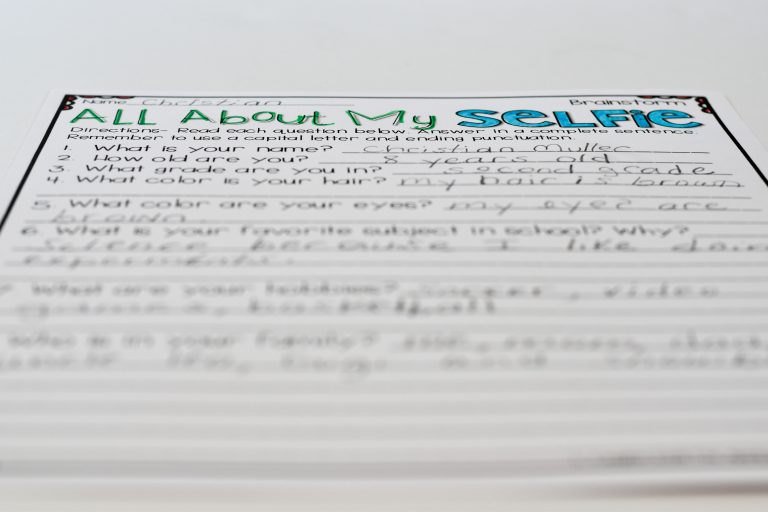 Name Christian Brainstorm
All About My SELFIE
Directions- Read each question below. Answer in a complete sentence.
Remember to use a capital letter and ending punctuation.
1. What is your name? Christian Muller
2. How old are you? 8 years old
3. What grade are you in? second grade
4. What color is your hair? my hair is brown
5. What color are your eyes? my eyes are
brown.
6. What is your favorite subject in school? Why?
Science because I like doing
experiments.
What are your hobbies? soccer, video
games, basketball
Who is in your family?